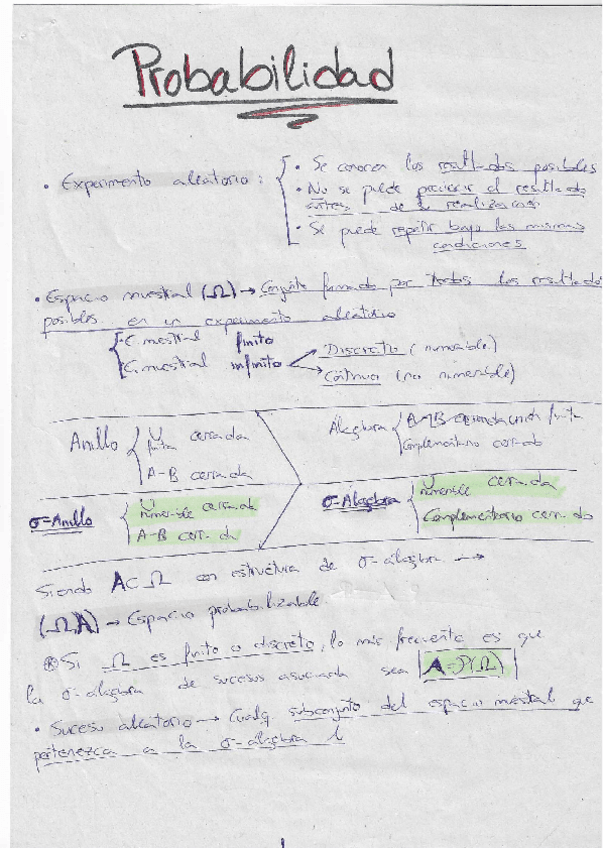 Probabilidad
• Experimento aleatorio:
• Se conocen los resultados posibles
• No se puede predecir el resultado
antes de la realización
• Se puede repetir bajo las mismas
condiciones
• Espacio muestral (Ω) → Conjunto formado por todos los resultados
posibles en un experimento aleatorio
E. muestral finito
E. muestral infinito
Discreto (numerable)
Continuo (no numerable)
Anillo
U finita cerrada
A-B cerrada
Algebra
unión finita
Complementario cerrado
σ-Anillo
U numerable cerrada
A-B cerrada
σ-Algebra
U numerable cerrada
Complementario cerrado
Siendo A⊂Ω con estructura de σ-álgebra →
(Ω,A) → Espacio probabilizable
⊗ Si Ω es finito o discreto, lo más frecuente es que
la σ-álgebra de sucesos asociada sea A=P(Ω)
• Suceso aleatorio → Cualq subconjunto del espacio muestral que
pertenezca a la σ-álgebra